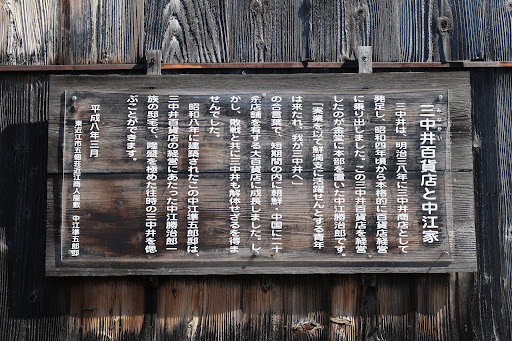 三中井百貨店と中江家
三中井は、明治三八年に三中井商店として
発足し、昭和四年頃から本格的に百貨店経営
に乗り出しました。この三中井百貨店を経営
したのが金堂に本部を置いた中江勝治郎です。
「実業を以て鮮満支に活躍せんとする青年
は来たれ、我が三中井へ」
の合言葉で、短期間の内に朝鮮・中国に二十
余店舗を有する大百貨店に成長しました。し
かし、敗戦と共に三中井も解体せざるを得ま
せんでした。
昭和八年に建築されたこの中江準五郎邸は、
三中井百貨店の経営にあたった中江勝治郎一
族の邸宅で、隆盛を極めた往時の三中井を偲
ぶことができます。
平成八年三月
東近江市五個荘近江商人屋敷 中江準五郎邸